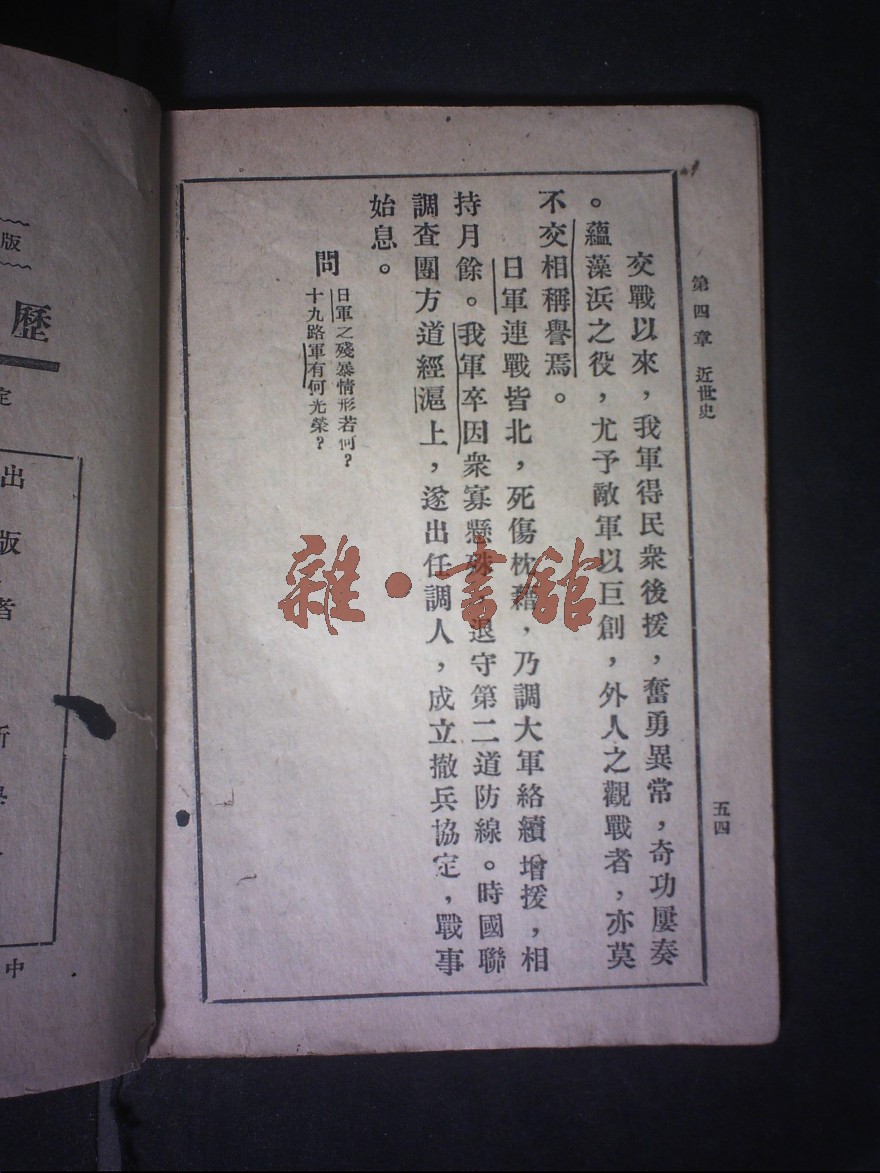 第四章 近世史
五四
交戰以來，我軍得民衆後援，奮勇異常，奇功屢奏
。蘊藻浜之役，尤予敵軍以巨創，外人之觀戰者，亦莫
不交相稱譽焉。
日軍連戰皆北，死傷枕藉，乃調大軍絡續增援，相
持月餘。我軍卒因衆寡懸殊，退守第二道防線。時國聯
調查團方道經滬上，遂出任調人，成立撤兵協定，戰事
始息。
問
日軍之殘暴情形若何？
十九路軍有何光榮？
雜·書館
版
歷
定
出版者
中